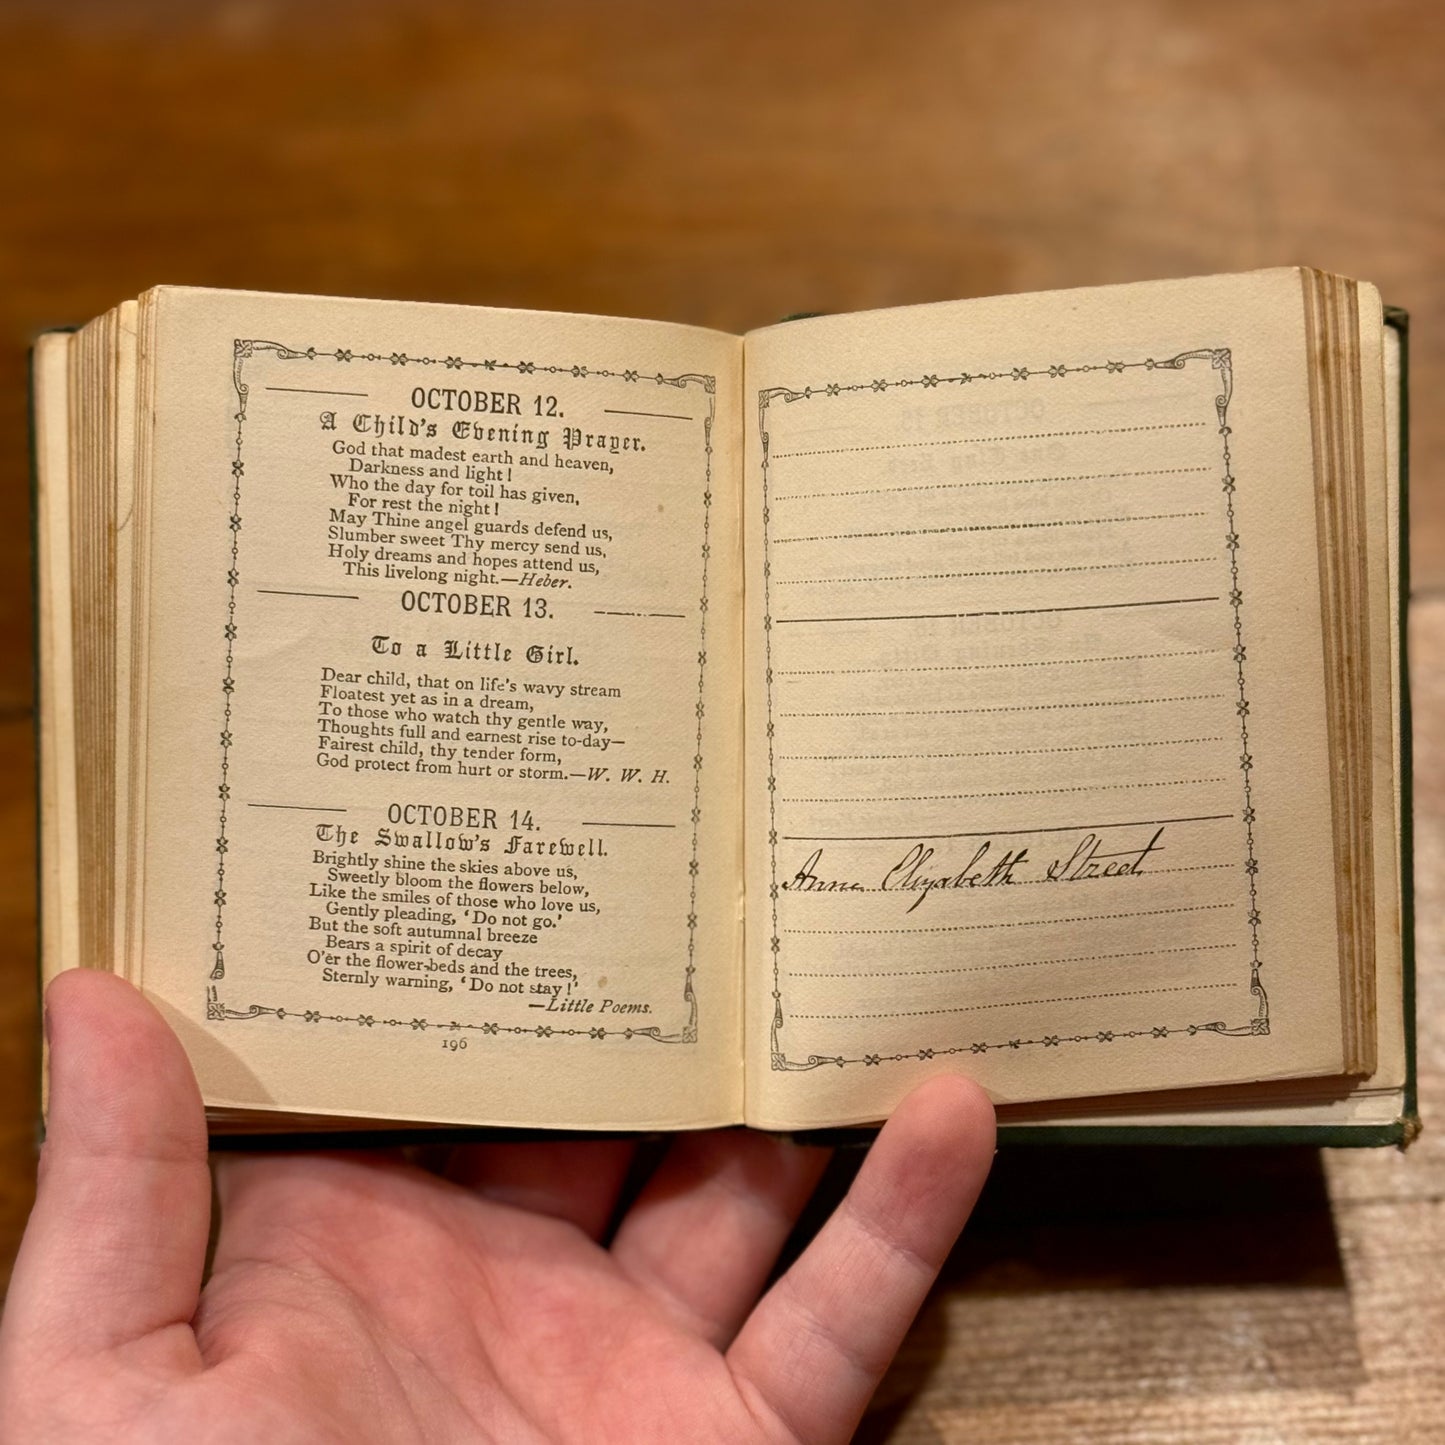 OCTOBER 12.
A Child's Evening Prayer.
God that madest earth and heaven,
Darkness and light!
Who the day for toil has given,
For rest the night!
May Thine angel guards defend us,
Slumber sweet Thy mercy send us,
Holy dreams and hopes attend us,
This livelong night.—Heber.
OCTOBER 13.
To a Little Girl.
Dear child, that on life's wavy stream
Floatest yet as in a dream,
To those who watch thy gentle way,
Thoughts full and earnest rise to-day—
Fairest child, thy tender form,
God protect from hurt or storm.—W. W. H.
OCTOBER 14.
The Swallow's Farewell.
Brightly shine the skies above us,
Sweetly bloom the flowers below,
Like the smiles of those who love us,
Gently pleading, 'Do not go.'
But the soft autumnal breeze
Bears a spirit of decay
O'er the flower-beds and the trees,
Sternly warning, 'Do not stay!'
—Little Poems.
196
Anna Elizabeth Street